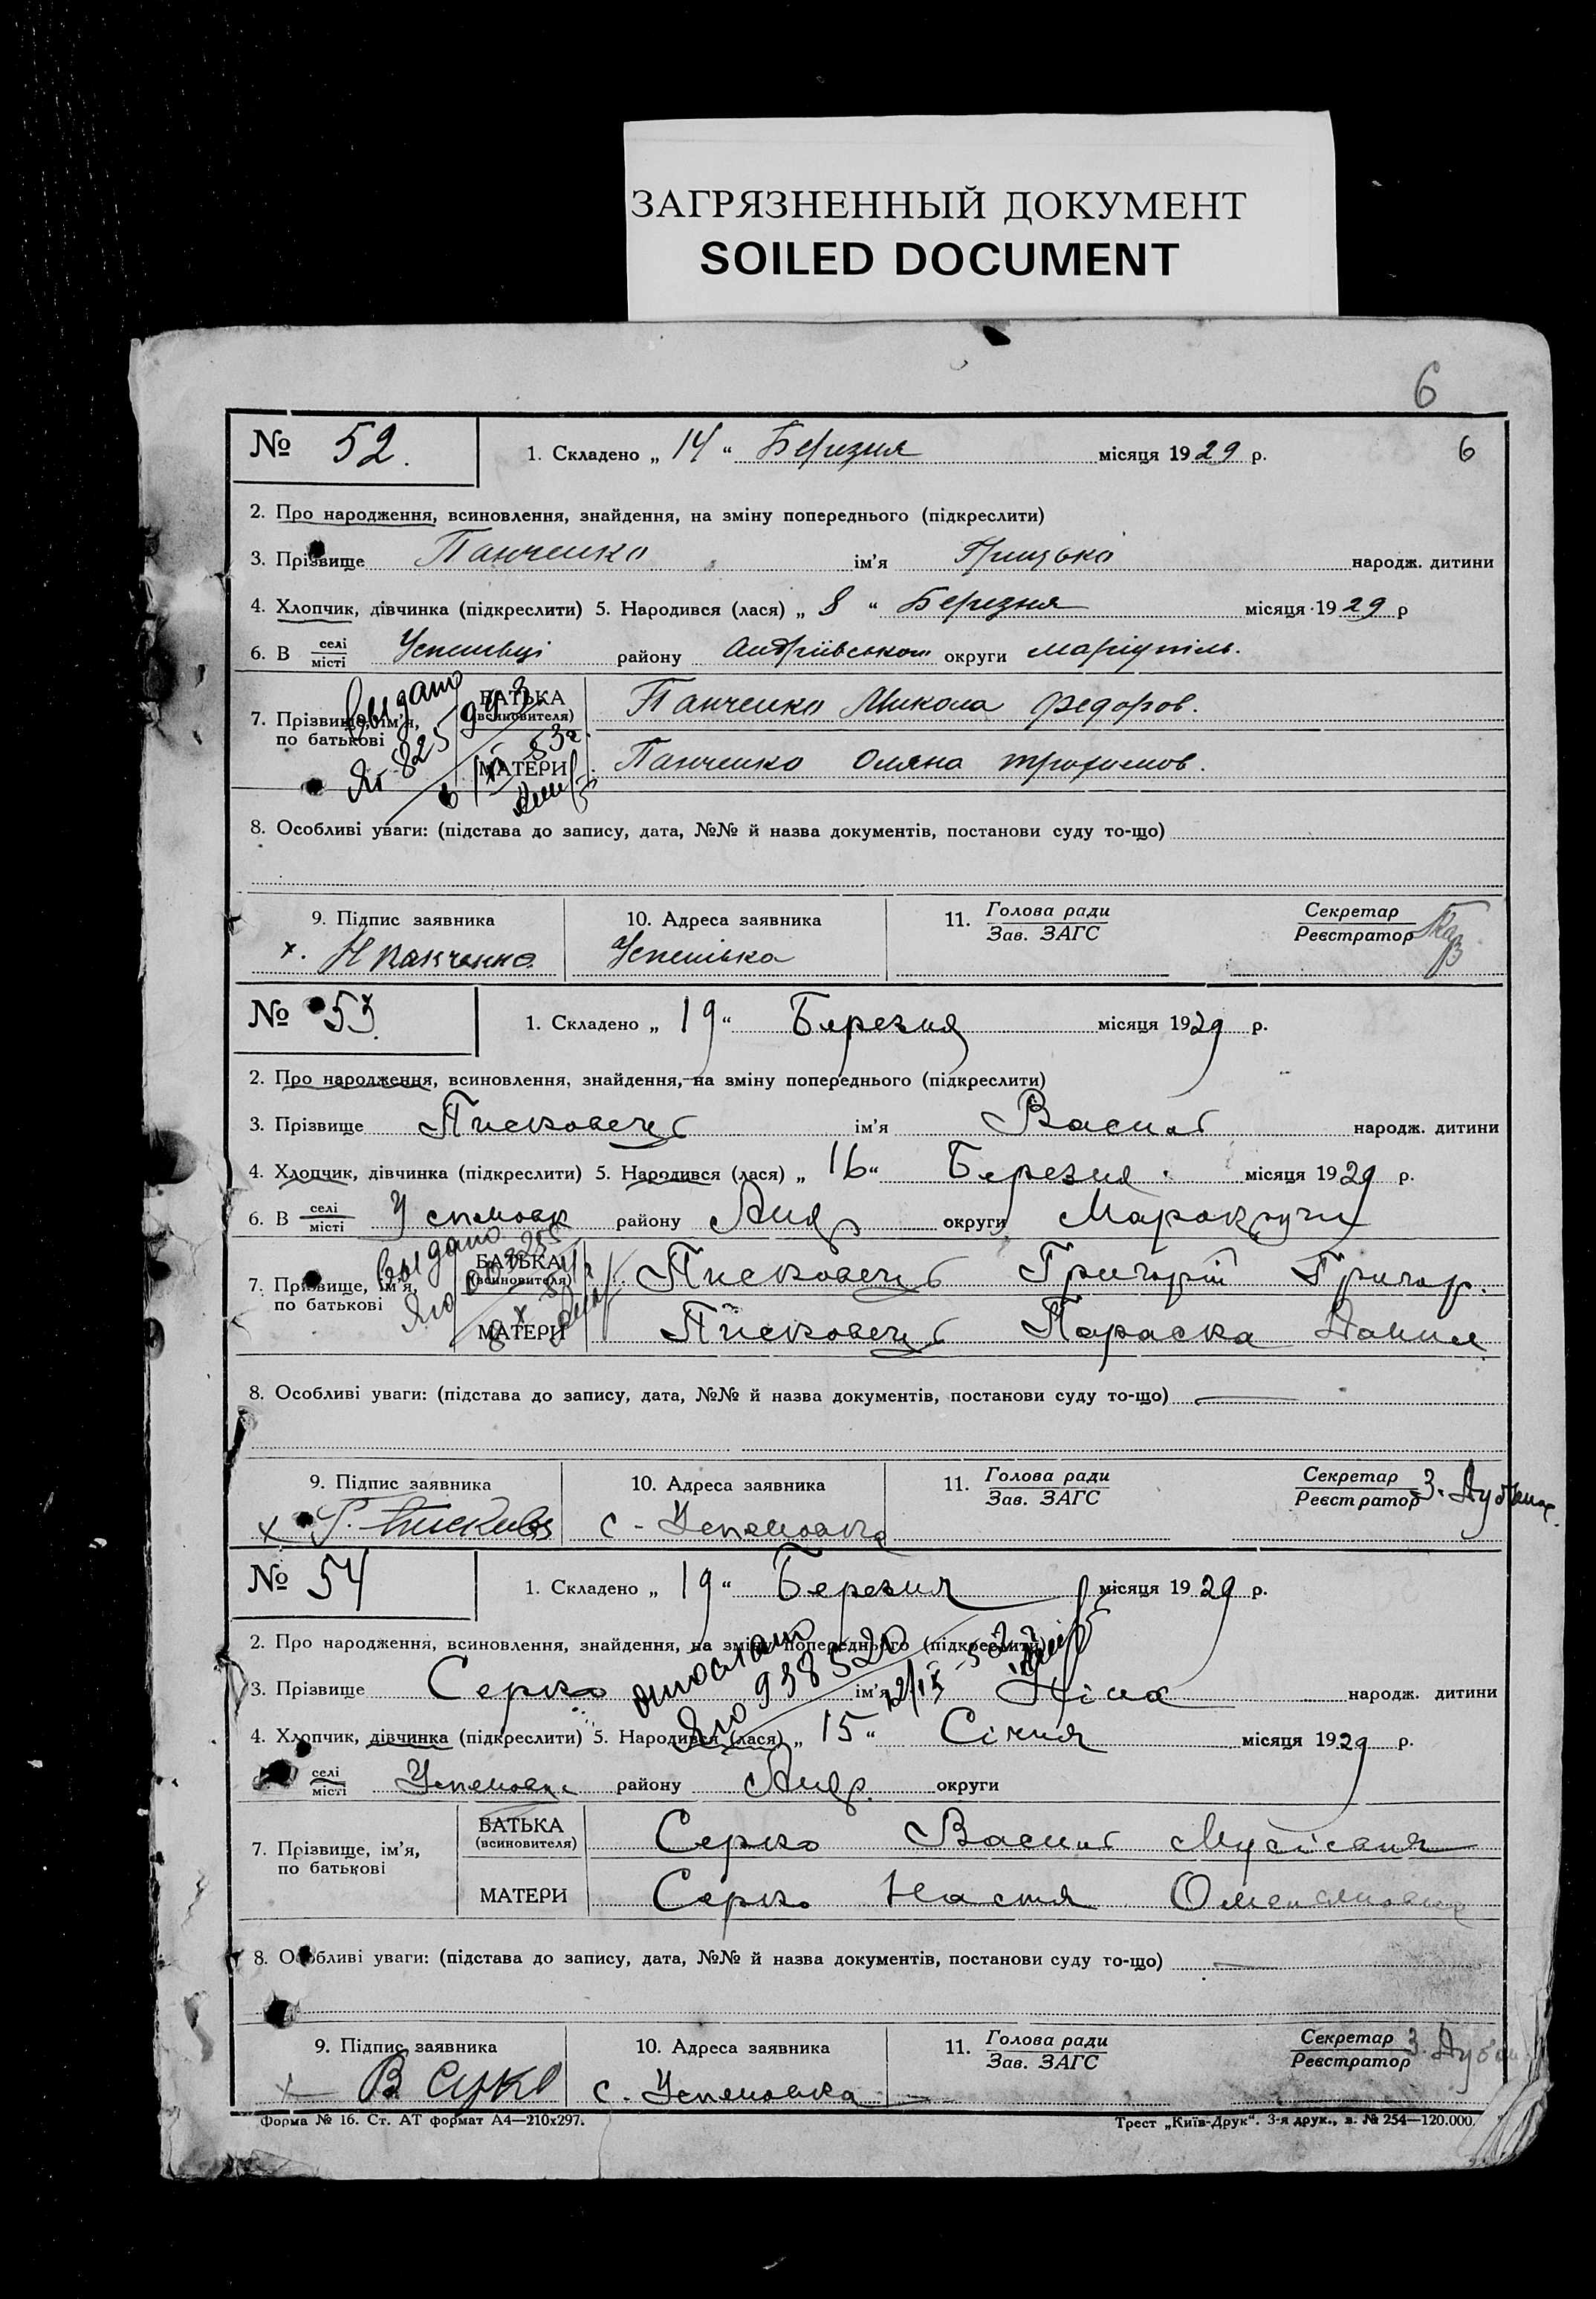 ЗАГРЯЗНЕННЫЙ ДОКУМЕНТ
SOILED DOCUMENT
6
№ 52. 1. Складено „ 14 “ Березня місяця 1929 р. 6
2. Про народження, всиновлення, знайдення, на зміну попереднього (підкреслити)
3. Прізвище Панченко ім'я Грицько народж. дитини
4. Хлопчик, дівчинка (підкреслити) 5. Народився (лася) „ 8 “ Березня місяця 1929 р
6. В селі місті Успенівці району Андріївськом округи маріупіль.
7. Прізвище, ім'я, по батькові БАТЬКА (всиновителя) Панченко Микола федоров.
МАТЕРИ Панченко Оляна трохимов.
Выдано
8. Особливі уваги: (підстава до запису, дата, №№ й назва документів, постанови суду то-що)
9. Підпис заявника 10. Адреса заявника 11. Голова ради Зав. ЗАГС Секретар Реєстратор
х. Н Панченко Успенівка
№ 53. 1. Складено „ 19 “ Березня місяця 1929 р.
2. Про народження, всиновлення, знайдення, на зміну попереднього (підкреслити)
3. Прізвище ім'я Василь народж. дитини
4. Хлопчик, дівчинка (підкреслити) 5. Народився (лася) „ 16 “ Березня. місяця 1929 р.
6. В селі місті Успеновк району Андр округи Марокруги
7. Прізвище, ім'я, по батькові БАТЬКА (всиновителя) Григорій Григор.
МАТЕРИ Параска Данил
Выдано
8. Особливі уваги: (підстава до запису, дата, №№ й назва документів, постанови суду то-що)
9. Підпис заявника 10. Адреса заявника 11. Голова ради Зав. ЗАГС Секретар Реєстратор
х с - Успеновка
№ 54 1. Складено „ 19 “ Березня місяця 1929 р.
2. Про народження, всиновлення, знайдення, на зміну попереднього (підкреслити)
3. Прізвище Серко ім'я Ніна народж. дитини
4. Хлопчик, дівчинка (підкреслити) 5. Народився (лася) „ 15 “ Січня місяця 1929 р.
селі місті Успеновк району Андр. округи
7. Прізвище, ім'я, по батькові БАТЬКА (всиновителя) Серко Василь
МАТЕРИ Серко Настя
8. Особливі уваги: (підстава до запису, дата, №№ й назва документів, постанови суду то-що)
9. Підпис заявника 10. Адреса заявника 11. Голова ради Зав. ЗАГС Секретар Реєстратор
с. Успеновка
Форма № 16. Ст. АТ формат А4—210х297. Трест „Київ-Друк“. 3-я друк., з. № 254—120.000.